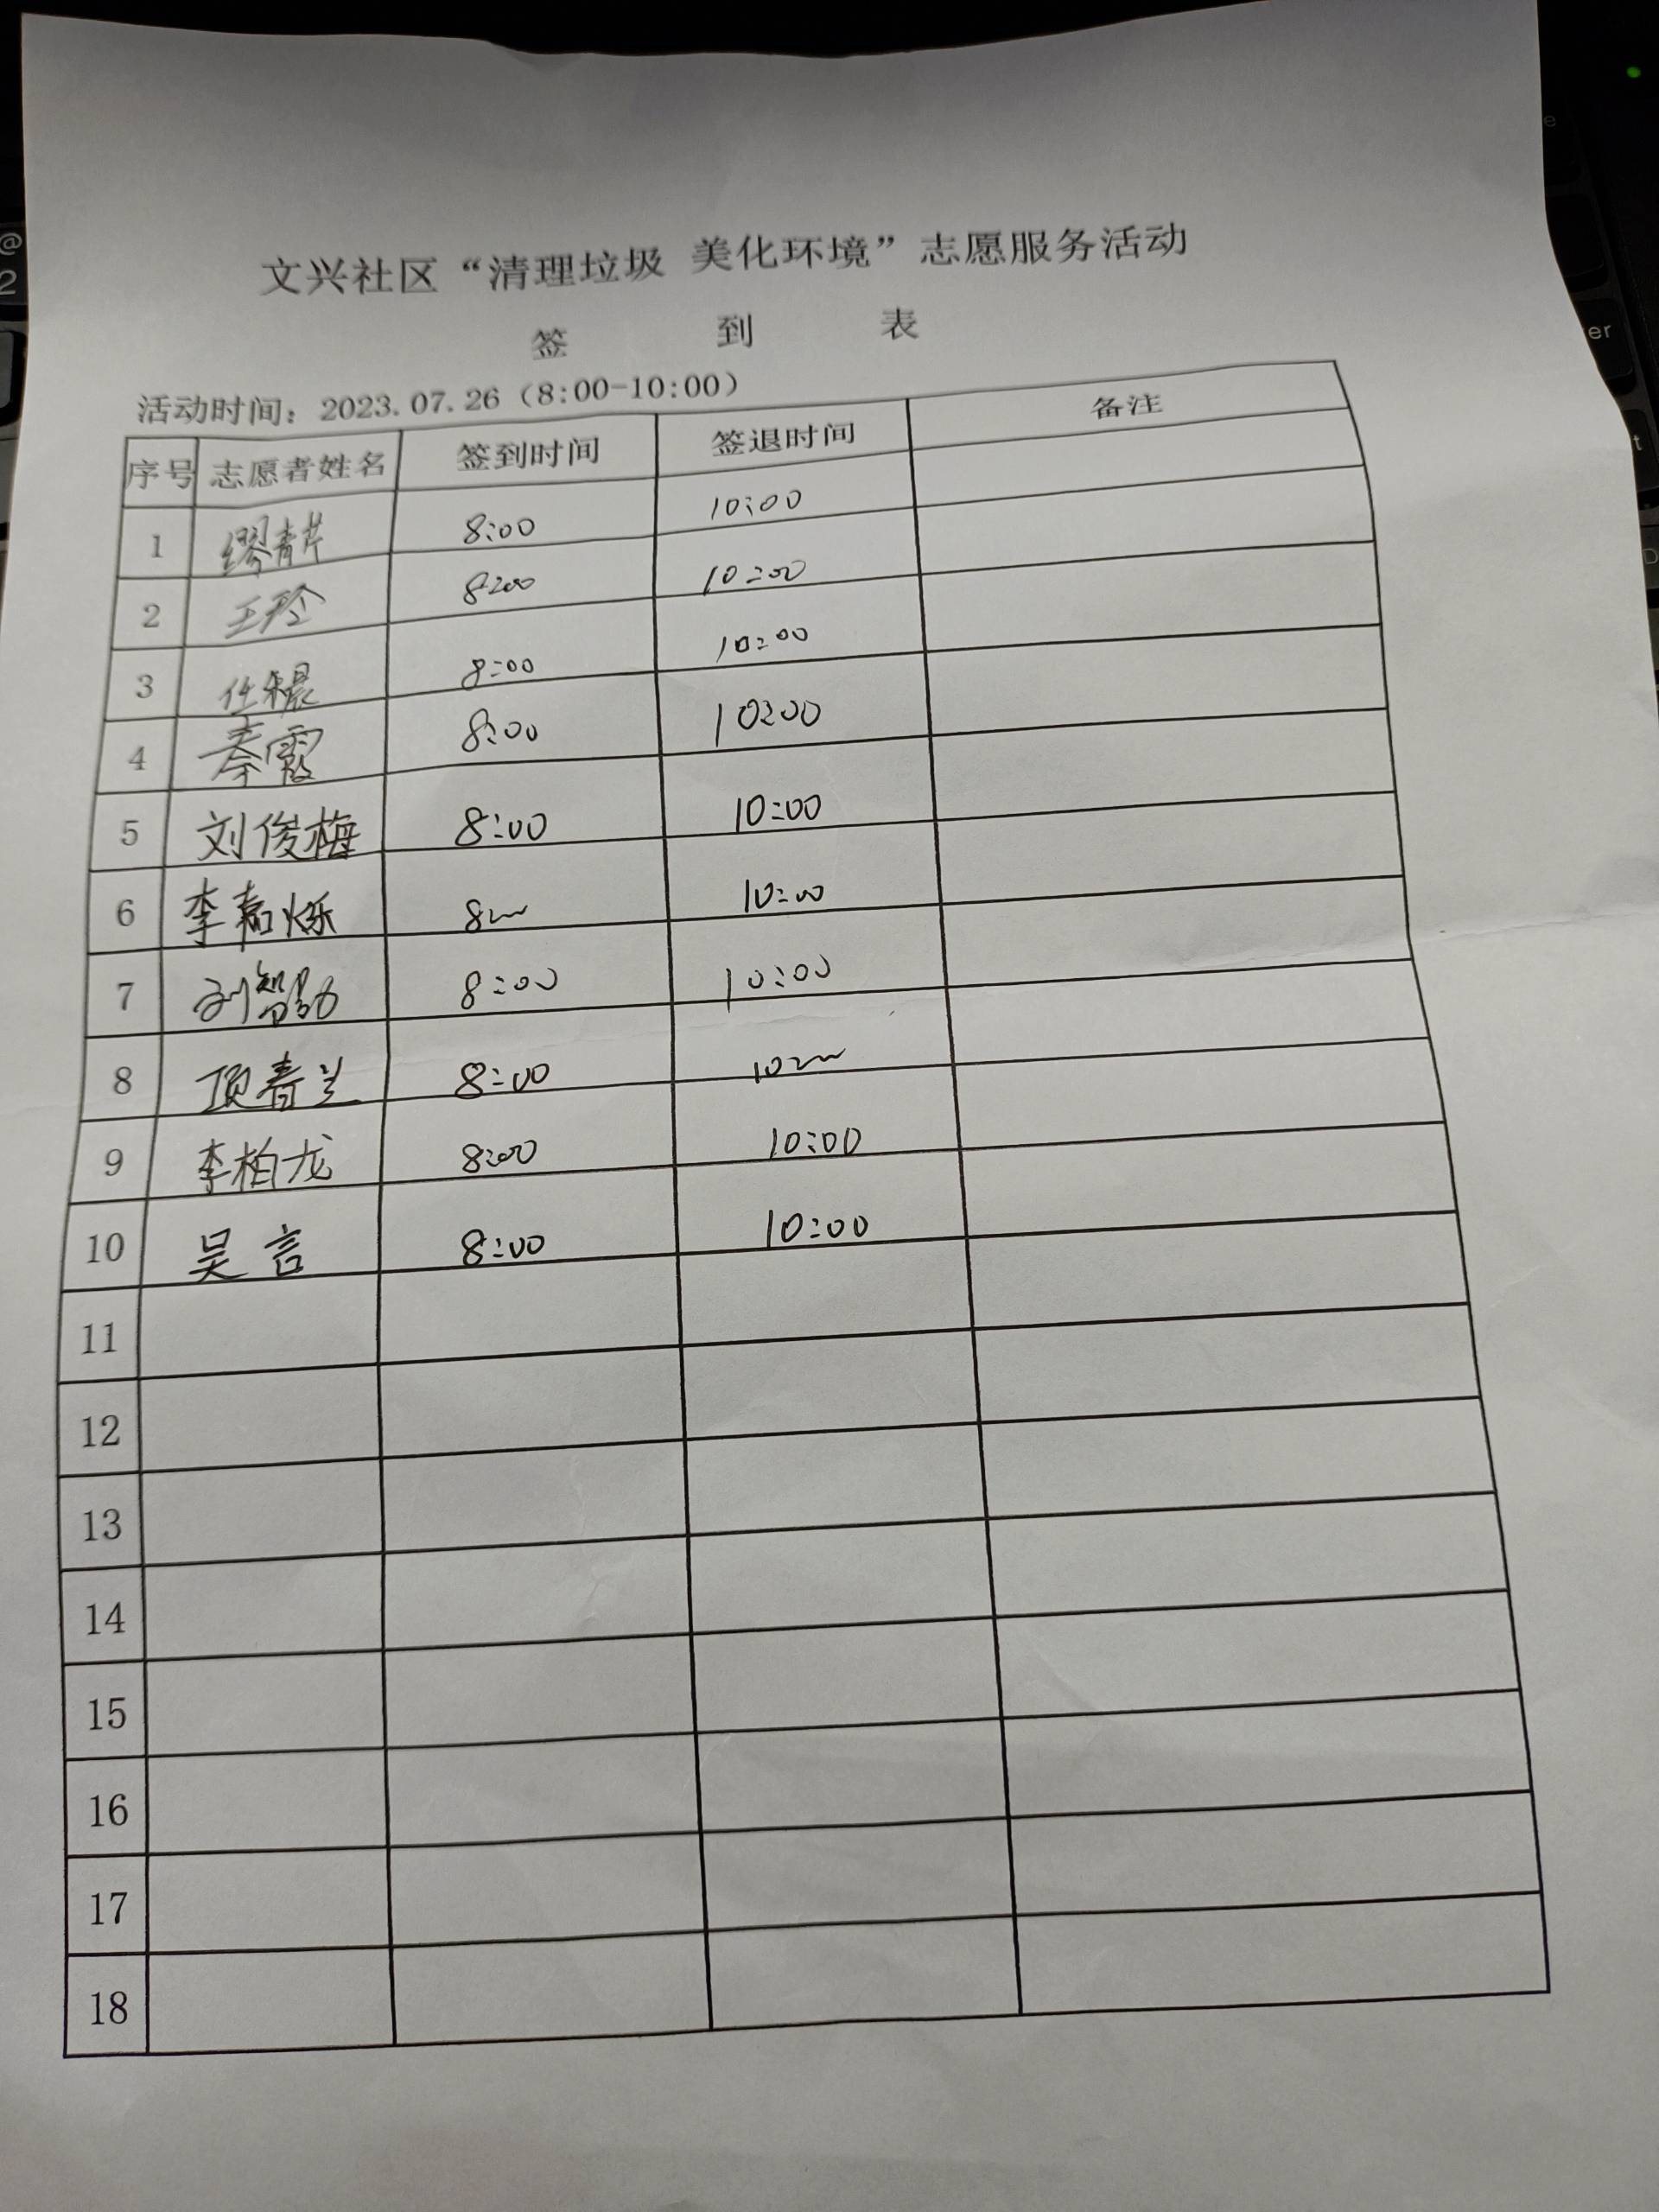 文兴社区“清理垃圾 美化环境”志愿服务活动
签 到 表
活动时间：2023.07.26（8:00-10:00）
序号 志愿者姓名 签到时间 签退时间 备注
1 缪青芹 8:00 10:00
2 王玲 8:00 10:00
3 任 8:00 10:00
4 秦霞 8:00 10:00
5 刘俊梅 8:00 10:00
6 李嘉烁 8:00 10:00
7 刘智勋 8:00 10:00
8 项春兰 8:00 10:00
9 李柏龙 8:00 10:00
10 吴言 8:00 10:00
11
12
13
14
15
16
17
18